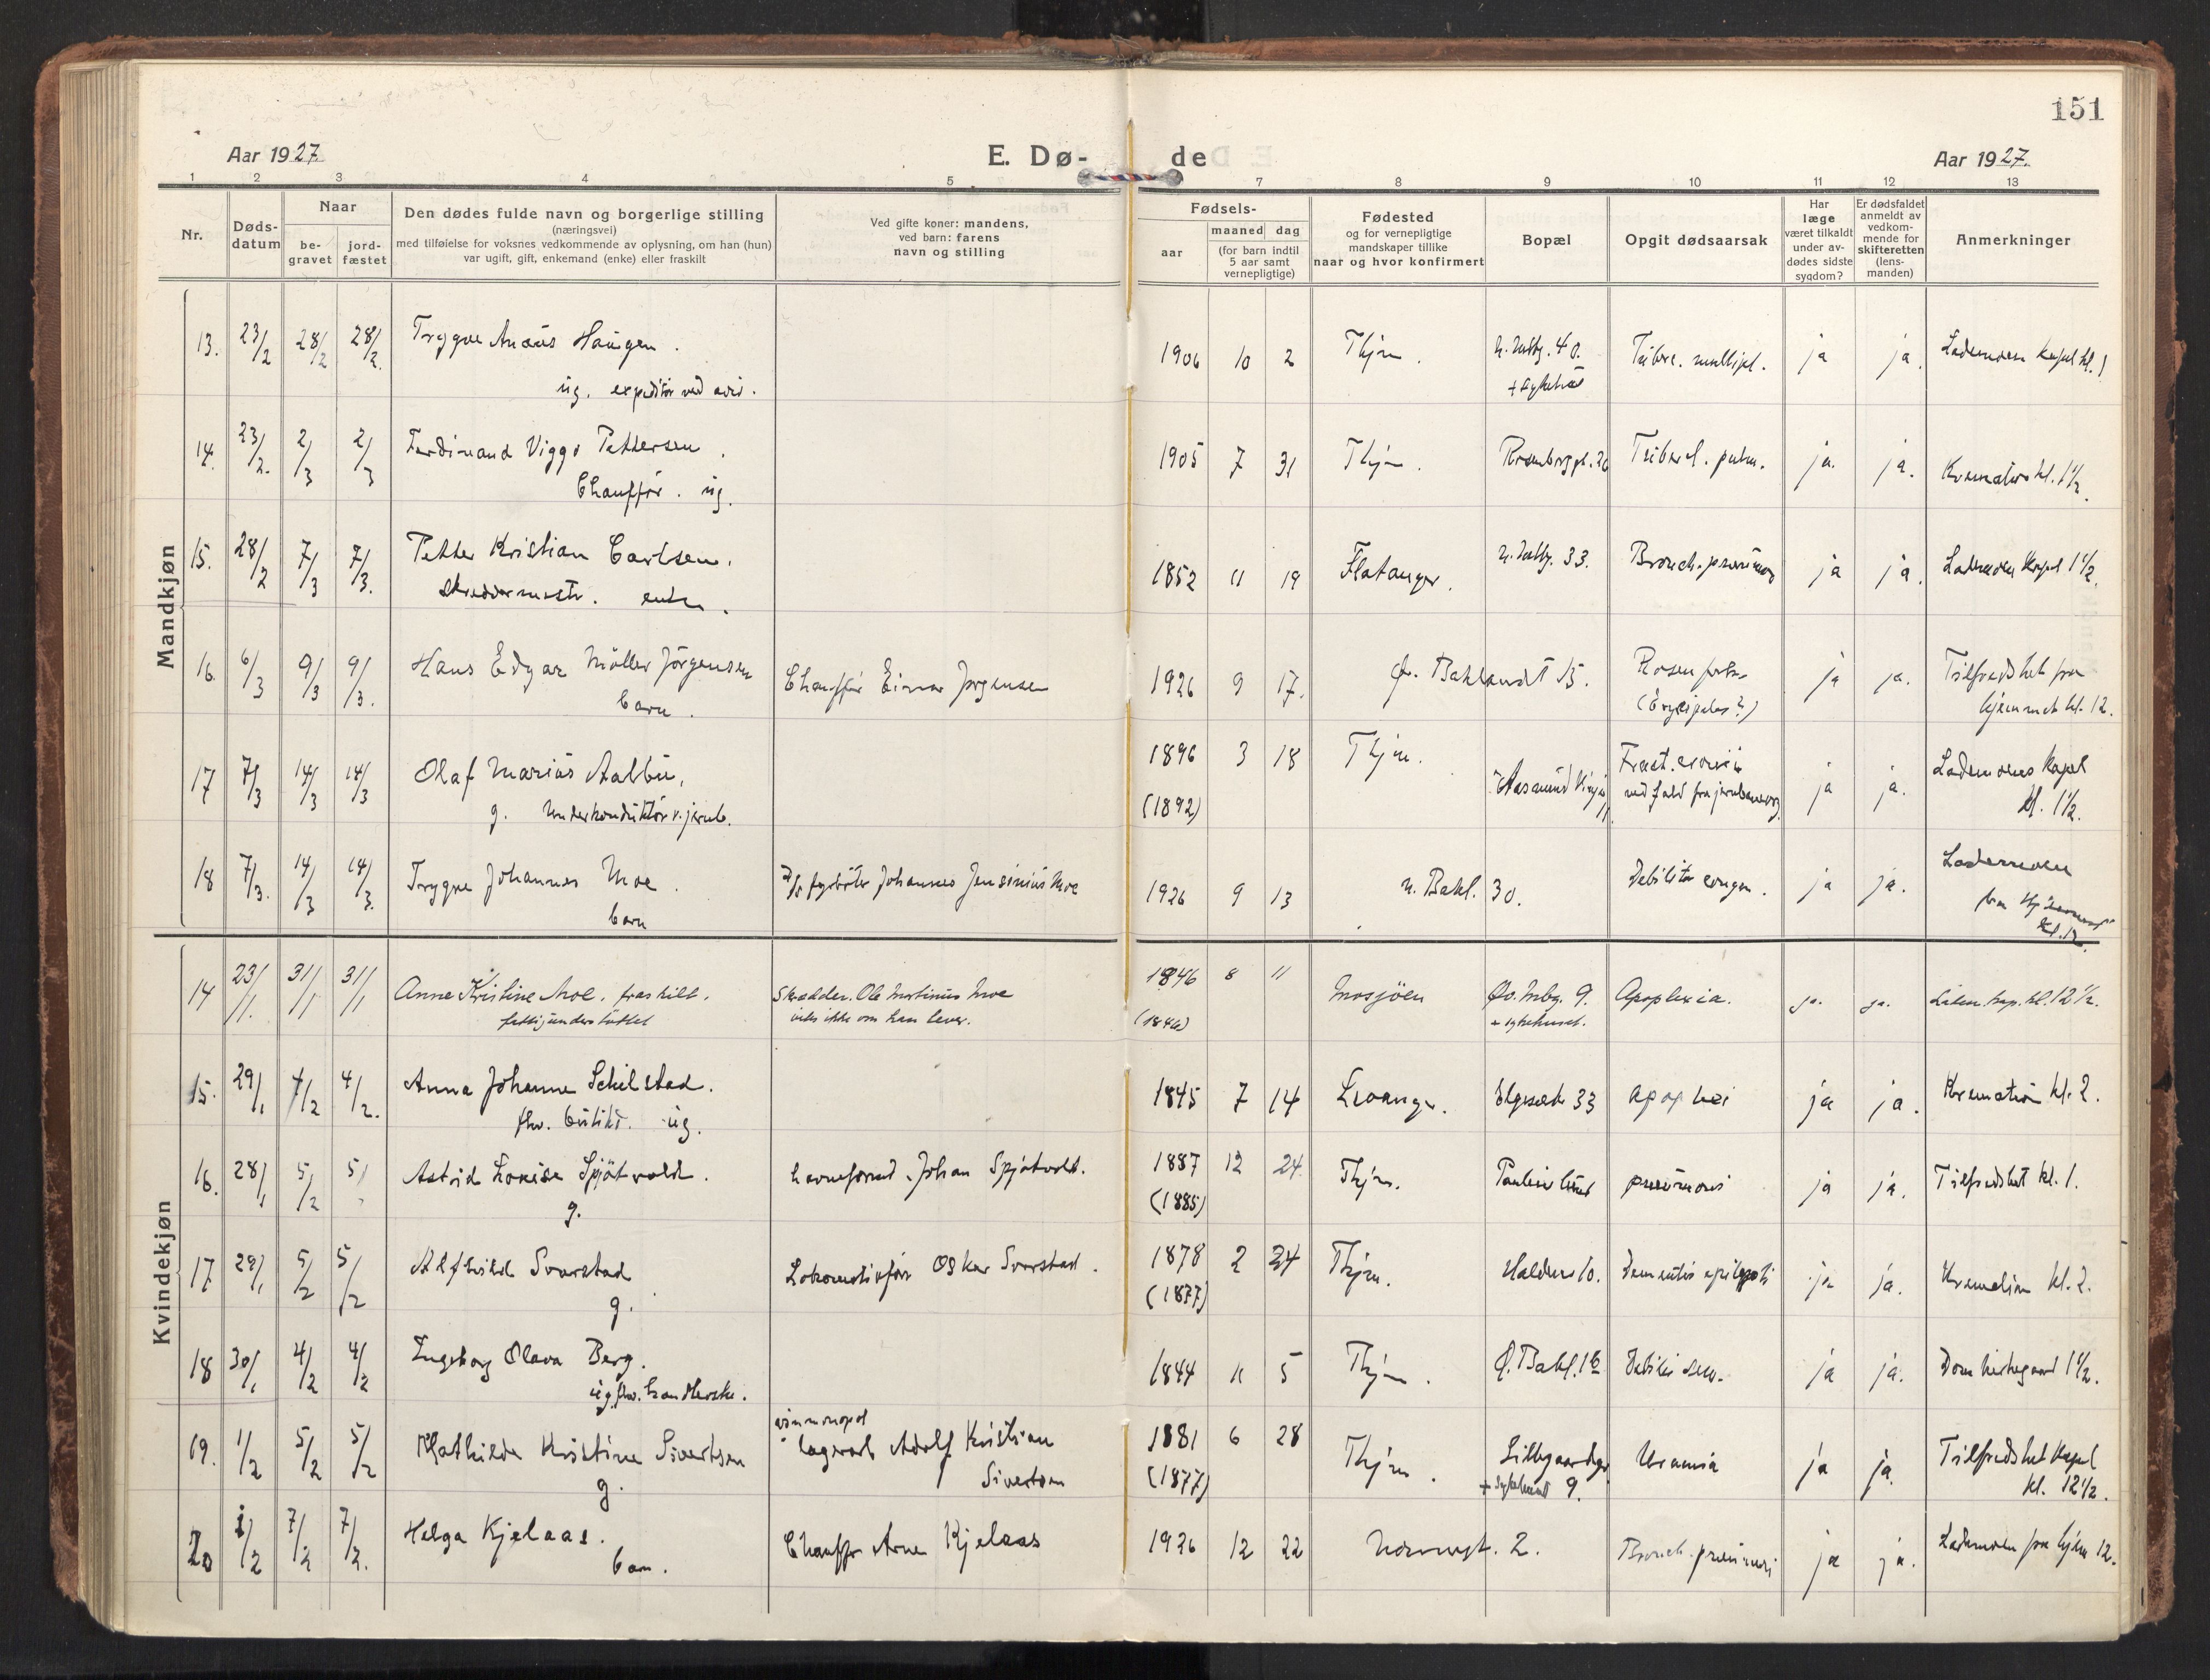 151
Aar 1927
E. Dø-
de
Aar 1927.
1 2 3 4 5 7 8 9 10 11 12 13
Nr.
Døds-
datum
Naar
be-
gravet
jord-
fæstet
Den dødes fulde navn og borgerlige stilling
(næringsvei)
med tilføielse for voksnes vedkommende av oplysning, om han (hun)
var ugift, gift, enkemand (enke) eller fraskilt
Ved gifte koner: mandens,
ved barn: farens
navn og stilling
Fødsels-
aar
maaned dag
(for barn indtil
5 aar samt
vernepligtige)
Fødested
og for vernepligtige
mandskaper tillike
naar og hvor konfirmert
Bopæl
Opgit dødsaarsak
Har
læge
været tilkaldt
under av-
dødes sidste
sygdom?
Er dødsfaldet
anmeldt av
vedkom-
mende for
skifteretten
(lens-
manden)
Anmerkninger
Mandkjøn
13. 23/2 28/2 28/2. Trygve Haugen. 1906 10 2 Thjm. 40. ja ja. Lademoen kapel kl. 1
ug. expeditör ved avis. + sykehus
14. 23/2. 2/3 2/3 Ferdinand Viggo Pettersen. 1905 7 31 Thjm. Tubercl. pulm. ja. ja. kl. 1 1/2.
Chauffør. ug.
15. 28/2 7/3 7/3. Petter Kristian Carlsen. 1852 11 19 Flatanger. 33. Bronch.pneumoni ja ja. Lademoen Kapel 1 1/2.
Skreddermestr. enkem.
16. 6/3 9/3 9/3. Hans Edgar Möller Jörgensen Chauffør Einar Jørgensen 1926 9 17. Ø. Baklandt 15. Rosen ja ja. Tilfredshet fra
barn. (Erysipelas?) hjemmet kl. 12.
17 7/3 14/3 14/3 Olaf Marius Aalbu, 1896 3 18 Thjm. Aasmund Fract. cranii ja ja. Lademoens Kapel
g. Underkonduktör v. jernb. (1892) ved fald fra kl. 1 1/2.
18 7/3. 14/3 14/3. Trygve Johannes Moe. fyrböter Johannes Jensinius Moe 1926 9 13 n. Bakl. 30. Debilitas congen. ja ja. Lademoen
barn fra hjemmet
kl. 12.
Kvindekjøn
14 23/1. 31/1 31/1 Anne Kristine Moe. fraskilt. Skrædder. Ole Martinus Moe 1846 8 11 Mosjöen Øv. 9. Apoplexia. ja. ja. Ladem. kap. kl. 12 1/2.
fattigunderstöttet vites ikke om han lever. (1846) + sykehuset.
15. 29/1 4/2 4/2. Anna Johanne Schilstad. 1845 7 14 Levanger. 33 apoplexi ja ja. Kremation kl. 2.
fhv. ug.
16. 28/1 5/2 5/ Astrid Lovise Spjötvold. Johan Spjøtvold. 1887 12 24 Thjm. pneumoni ja ja. Tilfredshet kl. 1.
g. (1885)
17 29/1 5/2 5/2 Alfhild Svarstad Lokomotivför Oskar Svarstad. 1878 2 24 Thjm. 10. Dementia epilepti ja ja. Kremation kl. 2.
g. (1877)
18 30/1 4/2 4/2 Ingeborg Olava Berg. 1844 11 5 Thjm. Ø. Bakl. Debilit. sen. ja ja. Domkirkegaard 1 1/2.
ug. fhv. handlerske.
vinmonopol
19. 1/2 5/2 5/2 Mathilde Kristine Sivertsen lagerarb Adolf Kristian 1881 6 28 Thjm. Lillegaardsgt Uræmia ja ja. Tilfredshet Kapel
g. Sivertsen (1877) + sykehuset 9. kl. 12 1/2.
20 7/2 7/2. Helga Kjelaas. Chauffør Arne Kjelaas 1926 12 22 2. Bronch. pneumoni ja ja. Lademoen fra hjem 12.
barn.